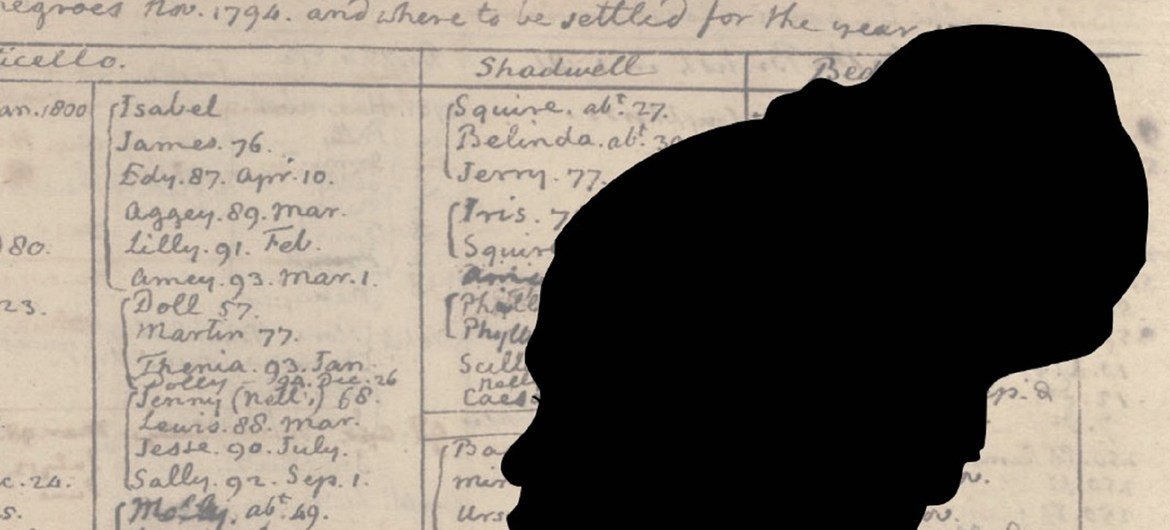 negroes Nov. 1794. and where to be settled for the year
icello.
an. 1800
80.
23.
c. 24.
s.
Isabel
James. 76.
Edy. 87. Apr. 10.
Aggey. 89. Mar.
Lilly. 91. Feb.
Amey. 93. Mar. 1.
Doll 57.
Martin 77.
Thenia. 93. Jan
Dolly 94. Dec. 26
Jenny (Nell's) 68.
Lewis. 88. Mar.
Jesse. 90. July.
Sally. 92. Sep. 1.
Molly. abt. 49.
Shadwell
Squire. abt. 27.
Belinda. abt. 39
Jerry. 77.
Iris. 7
Squir
Phyll
Scill
Nell
Caes
Ba
Min
Urs
Bed